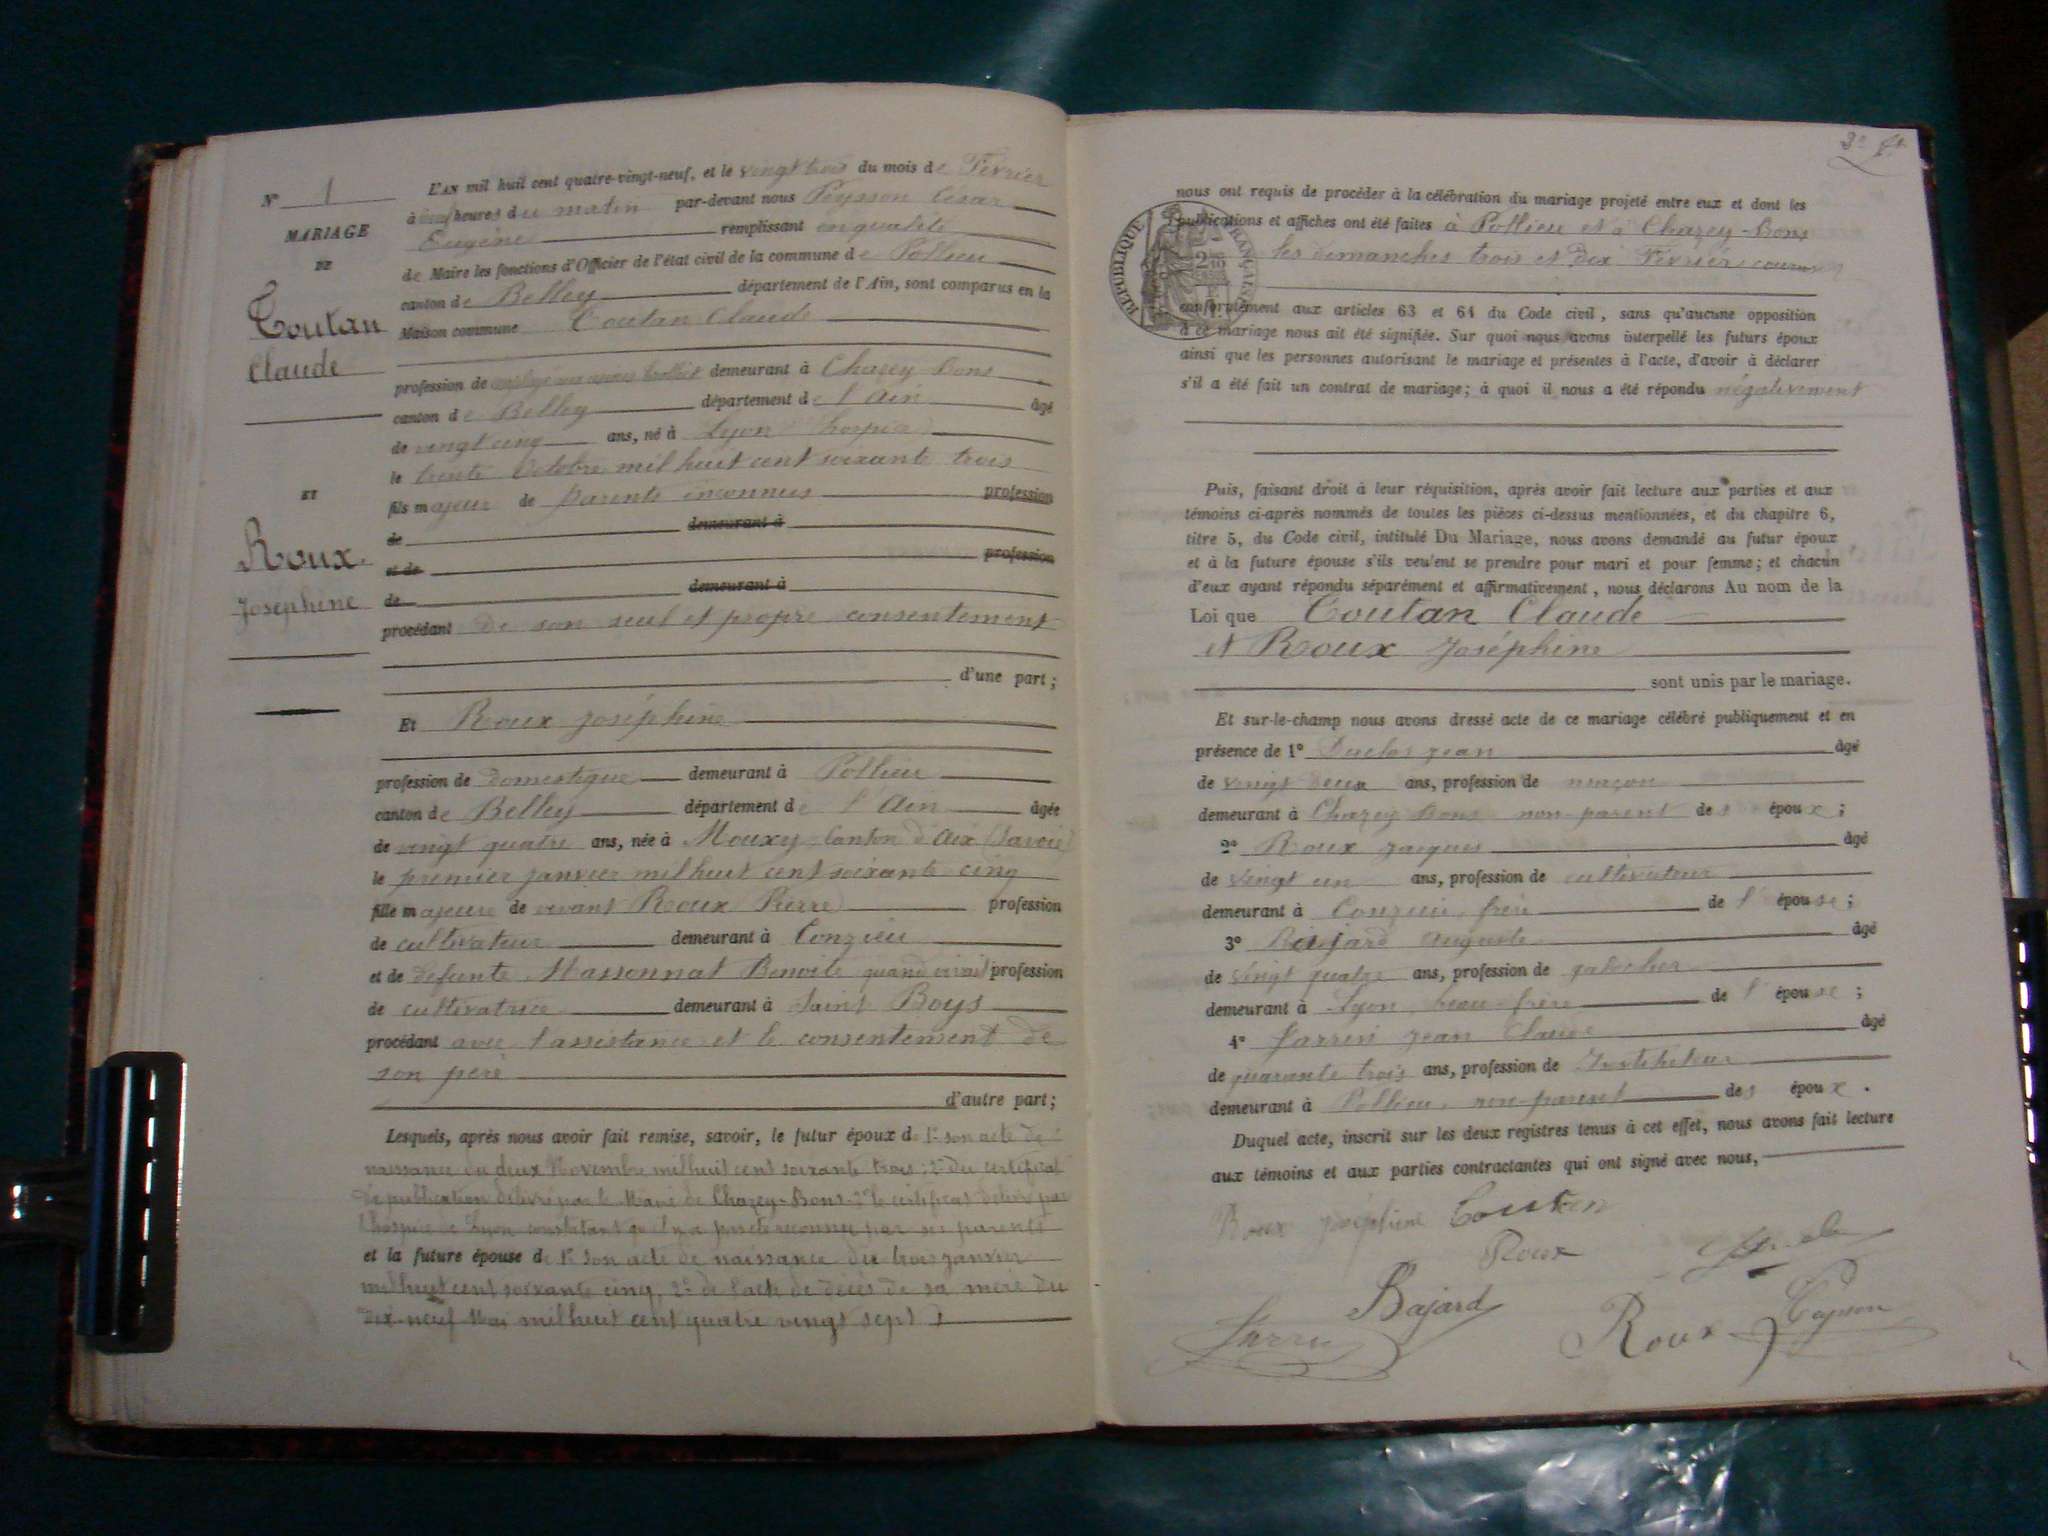 N° 1
MARIAGE
DE
Toutan
Claude
ET
Roux
Joséphine
L'AN mil huit cent quatre-vingt-neuf, et le vingt trois du mois de Février
à heures du matin par-devant nous Peysson César
Eugène remplissant en qualité
de Maire les fonctions d'Officier de l'état civil de la commune de Pollieu
canton de Belley département de l'Ain, sont comparus en la
Maison commune Toutan Claude
profession de demeurant à Chazey-Bons
canton de Belley département de l'Ain âgé
de vingt cinq ans, né à Lyon hospice
le trente Octobre mil huit cent soixante trois
fils majeur de parents inconnus profession
de demeurant à
et de profession
de demeurant à
procédant de son seul et propre consentement
d'une part;
Et Roux Joséphine
profession de domestique demeurant à Pollieu
canton de Belley département de l'Ain âgée
de vingt quatre ans, née à Mouxy Canton d'Aix (Savoie)
le premier janvier mil huit cent soixante cinq
fille majeure de vivant Roux Pierre profession
de cultivateur demeurant à Conzieu
et de défunte Massonnat Benoite quand vivait profession
de cultivatrice demeurant à Saint Boys
procédant avec l'assistance et le consentement de
son père
d'autre part;
Lesquels, après nous avoir fait remise, savoir, le futur époux de 1° son acte de
naissance du deux Novembre mil huit cent soixante trois; 2° du certificat
de publication délivré par le Maire de Chazey-Bons 3° le certificat délivré par
l'hospice de Lyon constatant qu'il n'a pas été reconnu par ses parents
et la future épouse de 1° son acte de naissance du trois janvier
mil huit cent soixante cinq, 2° de l'acte de décès de sa mère du
dix-neuf Mai mil huit cent quatre vingt sept
nous ont requis de procéder à la célébration du mariage projeté entre eux et dont les
publications et affiches ont été faites à Pollieu et à Chazey-Bons
les dimanches trois et dix Février courant
RÉPUBLIQUE FRANÇAISE
conformément aux articles 63 et 64 du Code civil, sans qu'aucune opposition
à ce mariage nous ait été signifiée. Sur quoi nous avons interpellé les futurs époux
ainsi que les personnes autorisant le mariage et présentes à l'acte, d'avoir à déclarer
s'il a été fait un contrat de mariage; à quoi il nous a été répondu négativement
Puis, faisant droit à leur réquisition, après avoir fait lecture aux parties et aux
témoins ci-après nommés de toutes les pièces ci-dessus mentionnées, et du chapitre 6,
titre 5, du Code civil, intitulé Du Mariage, nous avons demandé au futur époux
et à la future épouse s'ils veulent se prendre pour mari et pour femme; et chacun
d'eux ayant répondu séparément et affirmativement, nous déclarons Au nom de la
Loi que Toutan Claude
et Roux Joséphine
sont unis par le mariage.
Et sur-le-champ nous avons dressé acte de ce mariage célébré publiquement et en
présence de 1° Duclos Jean âgé
de vingt deux ans, profession de maçon
demeurant à Chazey Bons non-parent des époux;
2° Roux Jacques âgé
de vingt un ans, profession de cultivateur
demeurant à Conzieu, frère de l'épouse;
3° Bajard Auguste âgé
de vingt quatre ans, profession de
demeurant à Lyon, beau-frère de l'épouse;
4° Jean Claude âgé
de quarante trois ans, profession de Instituteur
demeurant à Pollieu, non-parent des époux.
Duquel acte, inscrit sur les deux registres tenus à cet effet, nous avons fait lecture
aux témoins et aux parties contractantes qui ont signé avec nous,
Roux Joséphine Toutan
Roux
Bajard
Roux Peysson